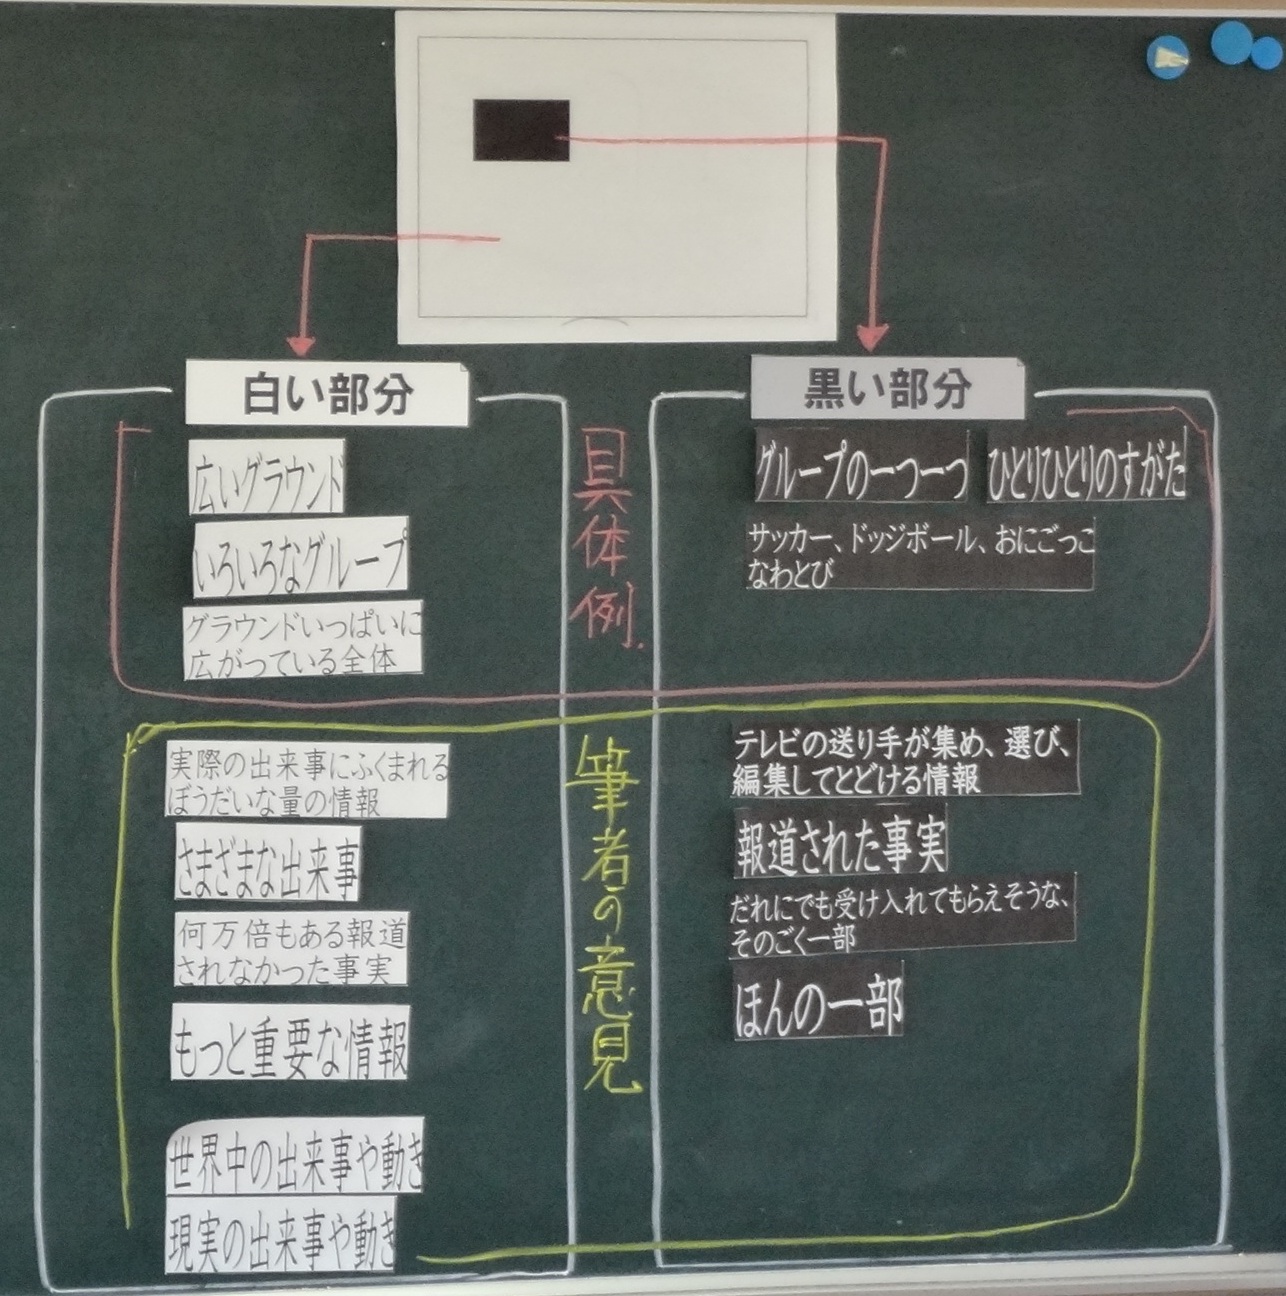 白い部分
広いグラウンド
いろいろなグループ
グラウンドいっぱいに
広がっている全体
実際の出来事にふくまれる
ぼうだいな量の情報
さまざまな出来事
何万倍もある報道
されなかった事実
もっと重要な情報
世界中の出来事や動き
現実の出来事や動き
具体例.
筆者の意見
黒い部分
グループの一つ一つ
ひとりひとりのすがた
サッカー、ドッジボール、おにごっこ
なわとび
テレビの送り手が集め、選び、
編集してとどける情報
報道された事実
だれにでも受け入れてもらえそうな、
そのごく一部
ほんの一部